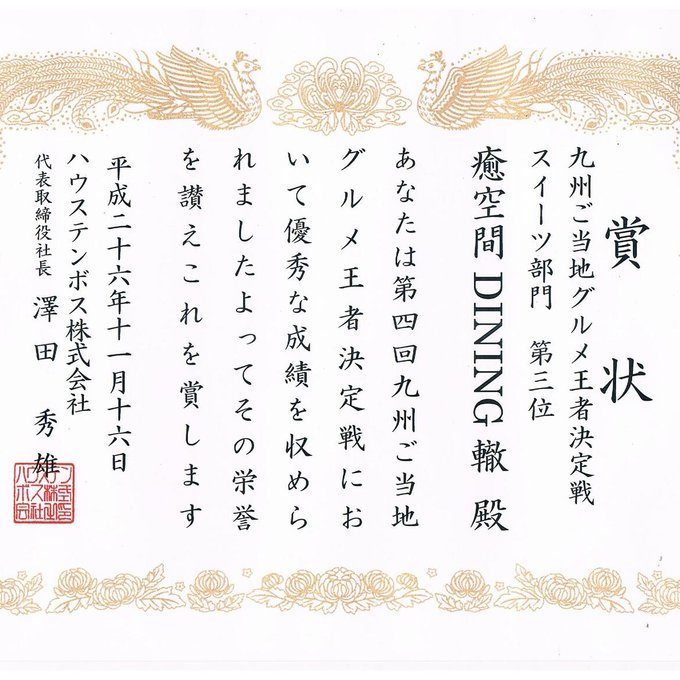 賞状
九州ご当地グルメ王者決定戦
スイーツ部門　第三位
癒空間 DINING 轍 殿
あなたは第四回九州ご当地
グルメ王者決定戦にお
いて優秀な成績を収めら
れましたよってその栄誉
を讃えこれを賞します
平成二十六年十一月十六日
ハウステンボス株式会社
代表取締役社長　澤田　秀雄